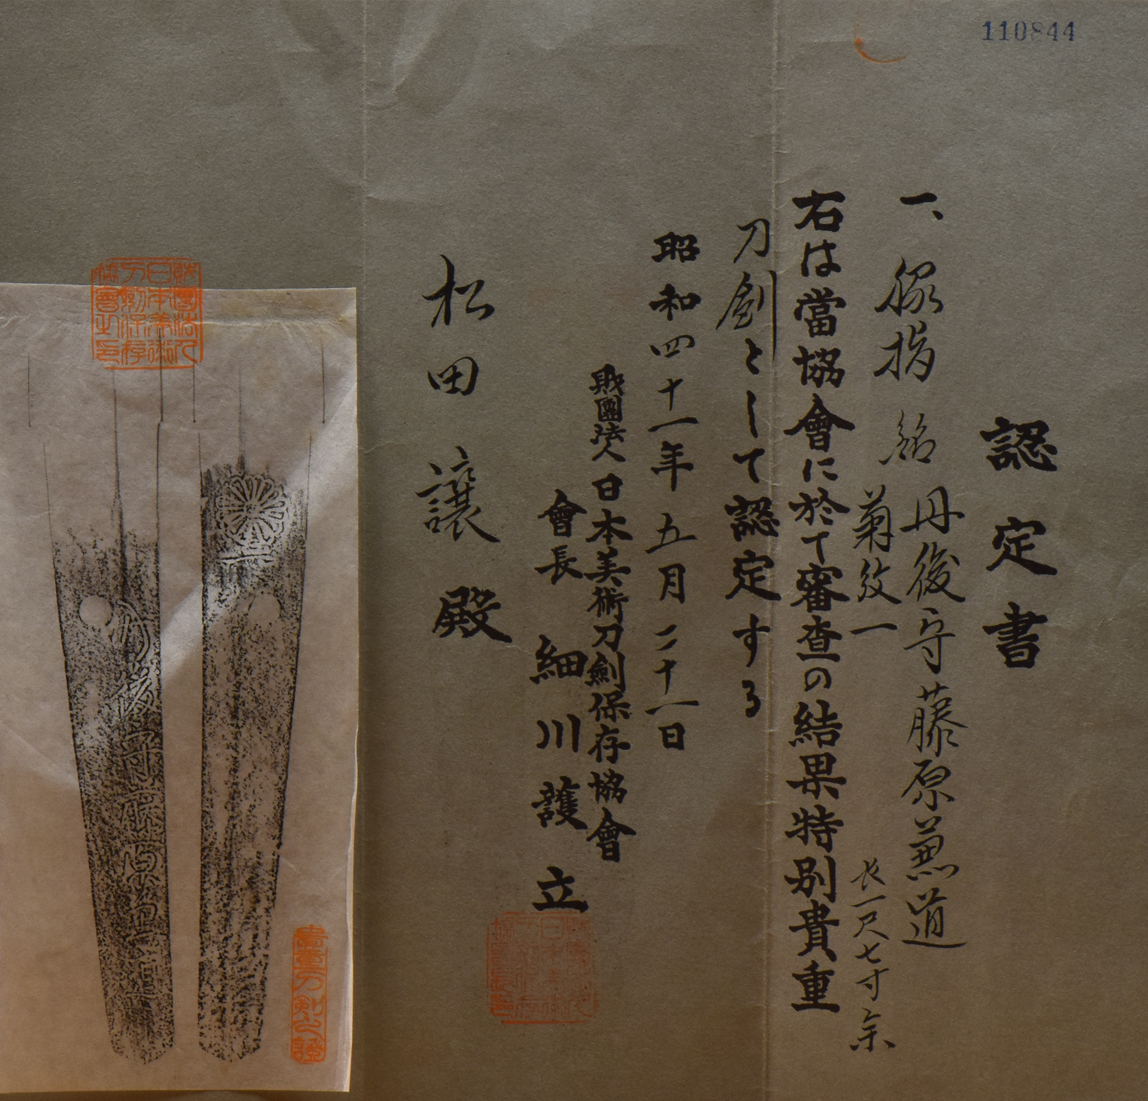 110844
認定書
一、脇指 銘 丹後守藤原兼道
菊紋一
長一尺七寸余
右は當協會に於て審査の結果特別貴重
刀劍として認定する
昭和四十一年五月二十一日
財團法人日本美術刀劍保存協會
會長 細川護立
松田 譲 殿
貴重刀剣之證